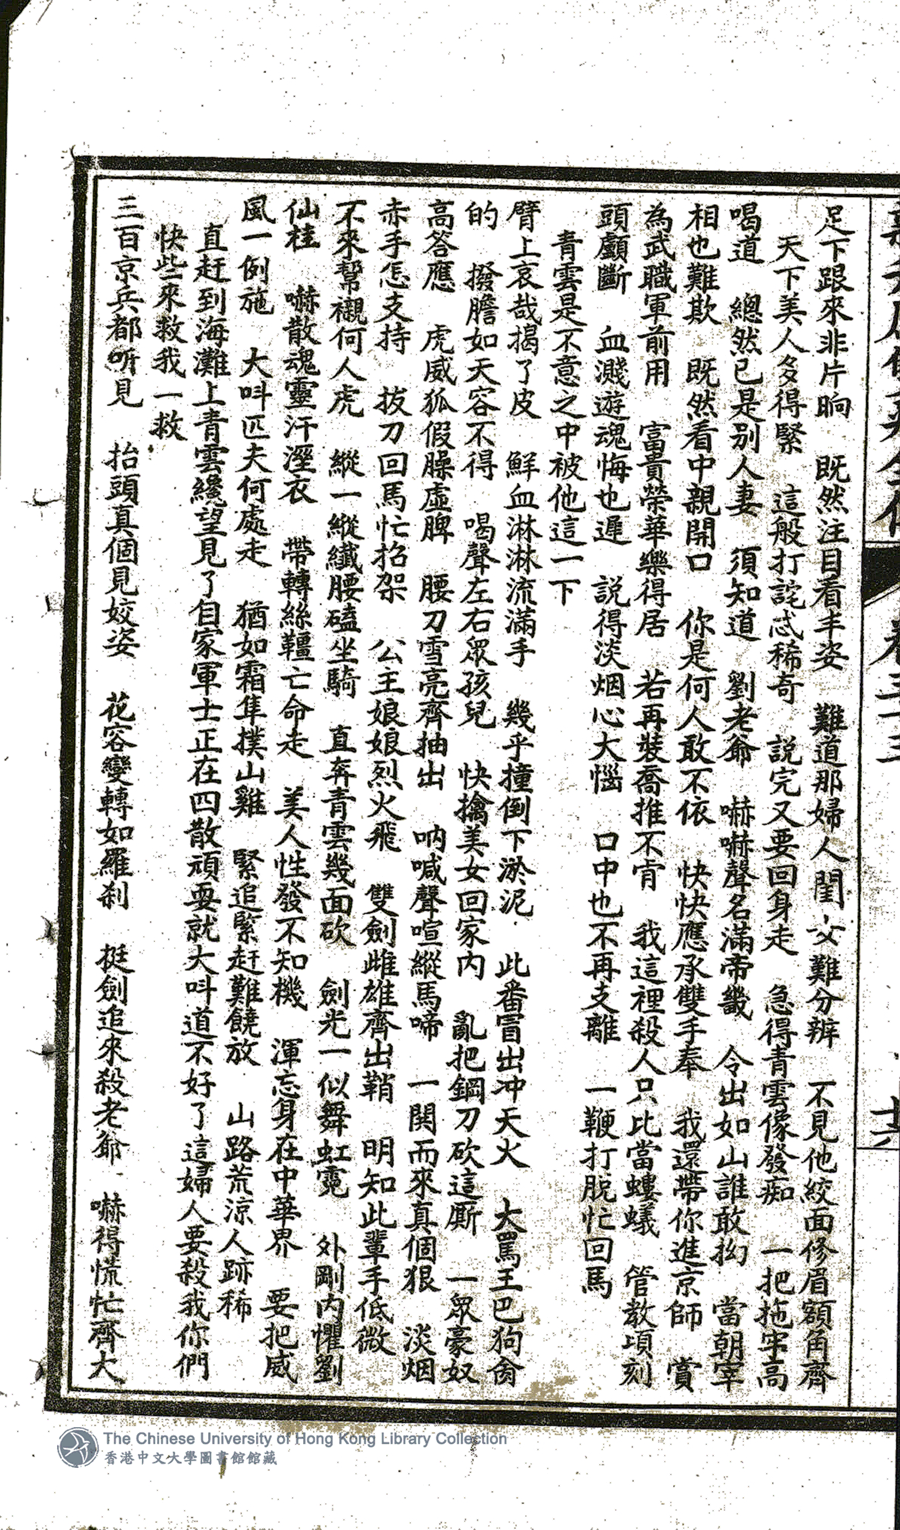 足下跟來非片晌　既然注目看丰姿　難道那婦人閨女難分辨　不見他絞面修眉額角齊
天下美人多得緊　這般打詫忒稀奇　說完又要回身走　急得青雲像發痴　一把拖牢高
喝道　總然已是別人妻　須知道　劉老爺　嚇嚇聲名滿帝畿　令出如山誰敢拗　當朝宰
相也難欺　既然看中親開口　你是何人敢不依　快快應承雙手奉　我還帶你進京師　賞
為武職軍前用　富貴榮華樂得居　若再裝喬推不肯　我這裡殺人只比當螻蟻　管教頃刻
頭顱斷　血濺遊魂悔也遲　說得淡烟心大惱　口中也不再支離　一鞭打脫忙回馬
青雲是不意之中被他這一下
臂上哀哉揭了皮　鮮血淋淋流滿手　幾乎撞倒下淤泥　此番冒出冲天火　大罵王巴狗禽
的　撥膽如天容不得　喝聲左右眾孩兒　快擒美女回家內　亂把鋼刀砍這厮　一眾豪奴
高答應　虎威狐假臊虛脾　腰刀雪亮齊抽出　吶喊聲喧縱馬啼　一関而來真個狠　淡烟
赤手怎支持　拔刀回馬忙招架　公主娘娘烈火飛　雙劍雌雄齊出鞘　明知此輩手低微
不來幫襯何人虎　縱一縱纖腰磕坐騎　直奔青雲幾面砍　劍光一似舞虹霓　外剛內懼劉
仙桂　嚇散魂靈汗溼衣　帶轉絲韁亡命走　美人性發不知機　渾忘身在中華界　要把威
風一例施　大呌匹夫何處走　猶如霜隼撲山雞　緊追緊赶難饒放　山路荒涼人跡稀
直赶到海灘上青雲纔望見了自家軍士正在四散頑耍就大呌道不好了這婦人要殺我你們
快些來救我一救
三百京兵都听見　抬頭真個見姣姿　花容變轉如羅刹　挺劍追來殺老爺　嚇得慌忙齊大
卷三十三
The Chinese University of Hong Kong Library Collection
香港中文大學圖書館館藏